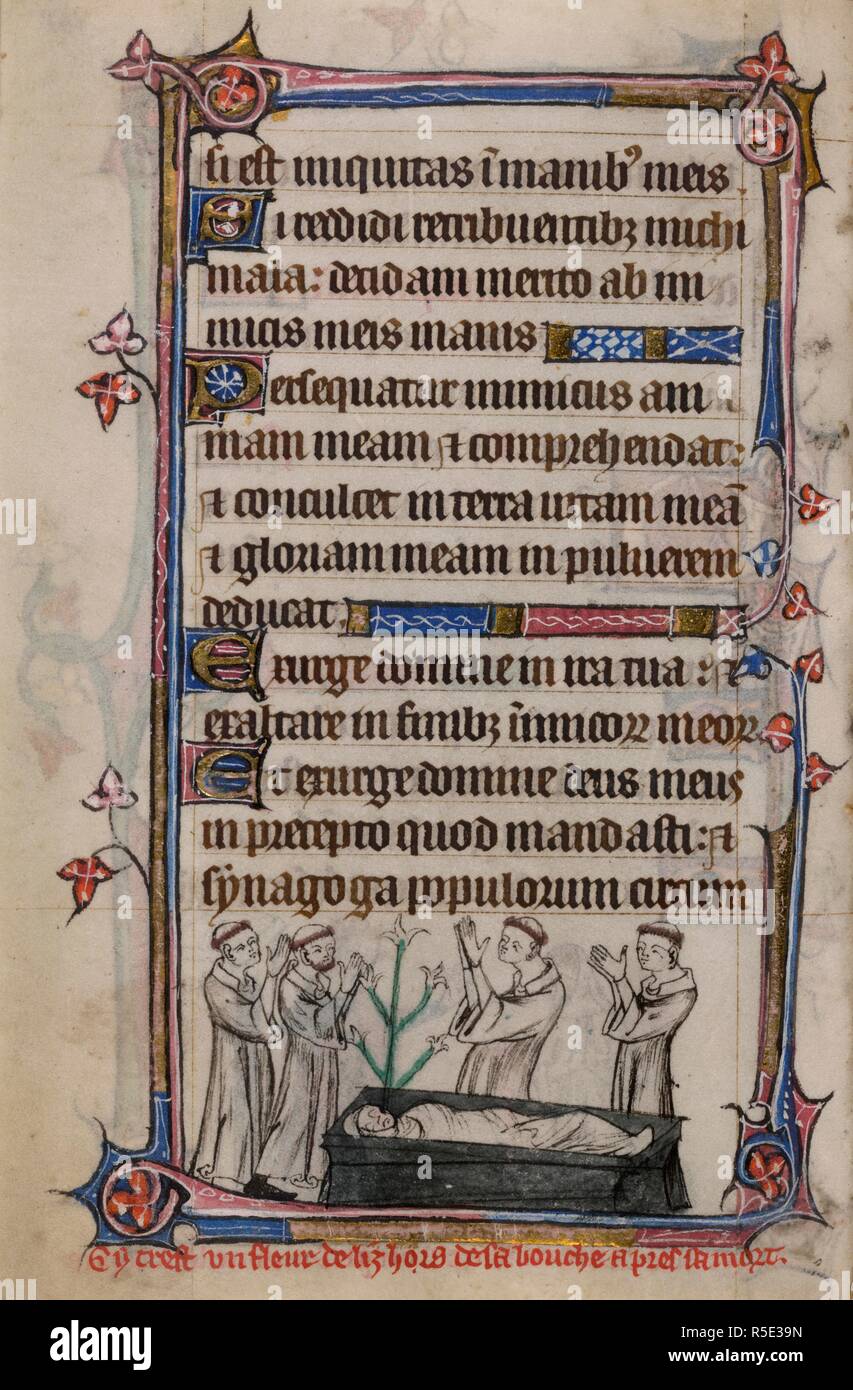 si est iniquitas ī manib⁹ meis.
Si reddidi retribuentibꝫ michi
mala: decidam merito ab ini
micis meis inanis
Persequatur inimicus ani
mam meam ⁊ comprehendat:
⁊ conculcet in terra uitam meā
⁊ gloriam meam in puluerem
deducat.
Exurge domine in ira tua: ⁊
exaltare in finibꝫ īimicoꝝ meoꝝ.
Et exurge domine deus meus
in precepto quod mandasti: ⁊
synagoga populorum circum
Cy crest un fleur de liz hors de sa bouche apres sa mort.
alamy
alamy
Image ID: R5E39N
www.alamy.com